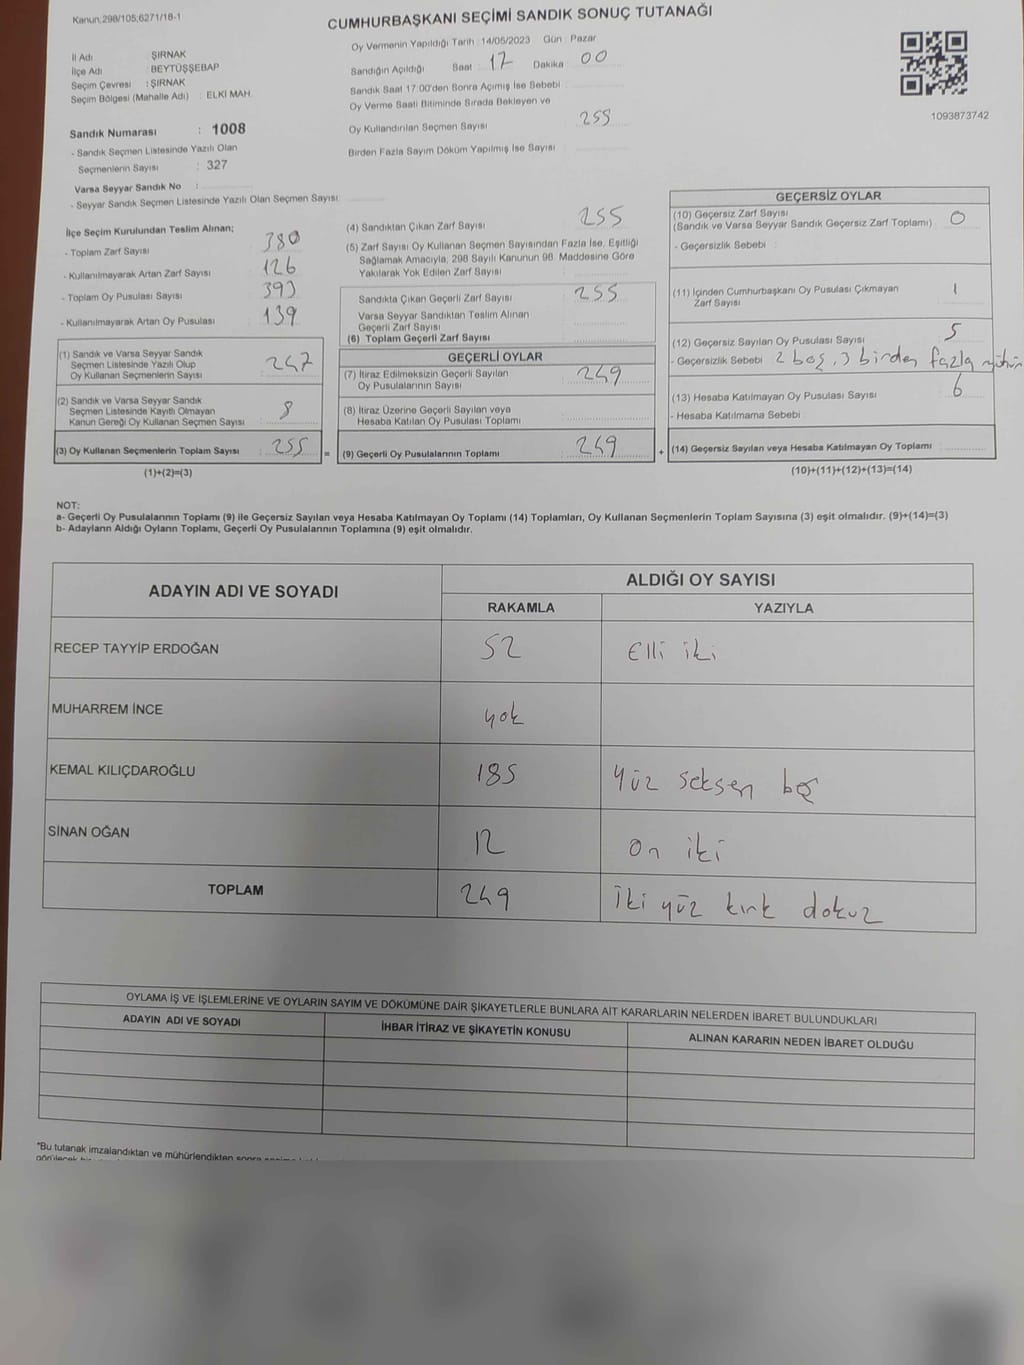 Kanun,298/105;6271/18-1
CUMHURBAŞKANI SEÇİMİ SANDIK SONUÇ TUTANAĞI
İl Adı : ŞIRNAK
İlçe Adı : BEYTÜŞŞEBAP
Seçim Çevresi : ŞIRNAK
Seçim Bölgesi (Mahalle Adı) : ELKİ MAH.
Sandık Numarası : 1008
- Sandık Seçmen Listesinde Yazılı Olan
Seçmenlerin Sayısı : 327
Varsa Seyyar Sandık No :
- Seyyar Sandık Seçmen Listesinde Yazılı Olan Seçmen Sayısı:
Oy Vermenin Yapıldığı Tarih : 14/05/2023 Gün : Pazar
Sandığın Açıldığı Saat : 17 Dakika : 00
Sandık Saat 17:00'den Sonra Açımış İse Sebebi :
Oy Verme Saati Bitiminde Sırada Bekleyen ve
Oy Kullandırılan Seçmen Sayısı : 255
Birden Fazla Sayım Döküm Yapılmış İse Sayısı :
1093873742
İlçe Seçim Kurulundan Teslim Alınan;
- Toplam Zarf Sayısı : 380
- Kullanılmayarak Artan Zarf Sayısı : 126
- Toplam Oy Pusulası Sayısı : 393
- Kullanılmayarak Artan Oy Pusulası : 139
(1) Sandık ve Varsa Seyyar Sandık
Seçmen Listesinde Yazılı Olup
Oy Kullanan Seçmenlerin Sayısı : 247
(2) Sandık ve Varsa Seyyar Sandık
Seçmen Listesinde Kayıtlı Olmayan
Kanun Gereği Oy Kullanan Seçmen Sayısı : 8
(3) Oy Kullanan Seçmenlerin Toplam Sayısı : 255 =
(1)+(2)=(3)
(4) Sandıktan Çıkan Zarf Sayısı : 255
(5) Zarf Sayısı Oy Kullanan Seçmen Sayısından Fazla İse, Eşitliği
Sağlamak Amacıyla, 298 Sayılı Kanunun 98. Maddesine Göre
Yakılarak Yok Edilen Zarf Sayısı :
Sandıkta Çıkan Geçerli Zarf Sayısı : 255
Varsa Seyyar Sandıktan Teslim Alınan
Geçerli Zarf Sayısı :
(6) Toplam Geçerli Zarf Sayısı :
GEÇERLİ OYLAR
(7) İtiraz Edilmeksizin Geçerli Sayılan
Oy Pusulalarının Sayısı : 249
(8) İtiraz Üzerine Geçerli Sayılan veya
Hesaba Katılan Oy Pusulası Toplamı :
(9) Geçerli Oy Pusulalarının Toplamı : 249 +
GEÇERSİZ OYLAR
(10) Geçersiz Zarf Sayısı
(Sandık ve Varsa Seyyar Sandık Geçersiz Zarf Toplamı) : 0
- Geçersizlik Sebebi :
(11) İçinden Cumhurbaşkanı Oy Pusulası Çıkmayan
Zarf Sayısı : 1
(12) Geçersiz Sayılan Oy Pusulası Sayısı : 5
- Geçersizlik Sebebi : 2 boş, 3 birden fazla mühür
(13) Hesaba Katılmayan Oy Pusulası Sayısı : 6
- Hesaba Katılmama Sebebi :
(14) Geçersiz Sayılan veya Hesaba Katılmayan Oy Toplamı :
(10)+(11)+(12)+(13)=(14)
NOT:
a- Geçerli Oy Pusulalarının Toplamı (9) ile Geçersiz Sayılan veya Hesaba Katılmayan Oy Toplamı (14) Toplamları, Oy Kullanan Seçmenlerin Toplam Sayısına (3) eşit olmalıdır. (9)+(14)=(3)
b- Adayların Aldığı Oyların Toplamı, Geçerli Oy Pusulalarının Toplamına (9) eşit olmalıdır.
ADAYIN ADI VE SOYADI
ALDIĞI OY SAYISI
RAKAMLA YAZIYLA
RECEP TAYYİP ERDOĞAN 52 Elli iki
MUHARREM İNCE yok
KEMAL KILIÇDAROĞLU 185 Yüz seksen beş
SİNAN OĞAN 12 On iki
TOPLAM 249 İki yüz kırk dokuz
OYLAMA İŞ VE İŞLEMLERİNE VE OYLARIN SAYIM VE DÖKÜMÜNE DAİR ŞİKAYETLERLE BUNLARA AİT KARARLARIN NELERDEN İBARET BULUNDUKLARI
ADAYIN ADI VE SOYADI İHBAR İTİRAZ VE ŞİKAYETİN KONUSU ALINAN KARARIN NEDEN İBARET OLDUĞU
*Bu tutanak imzalandıktan ve mühürlendikten sonra